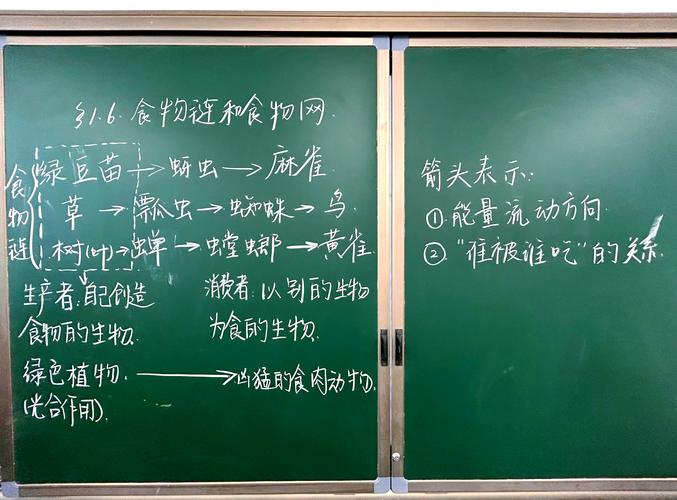 §1.6. 食物链和食物网.
食物链
绿豆苗→蚜虫→麻雀.
草→瓢虫→蜘蛛→鸟.
树(叶)→蝉→螳螂→黄雀.
生产者:自己创造
食物的生物.
绿色植物.
(光合作用).
消费者:以别的生物
为食的生物.
→凶猛的食肉动物.
箭头表示:
①能量流动方向.
②"谁被谁吃"的关系.